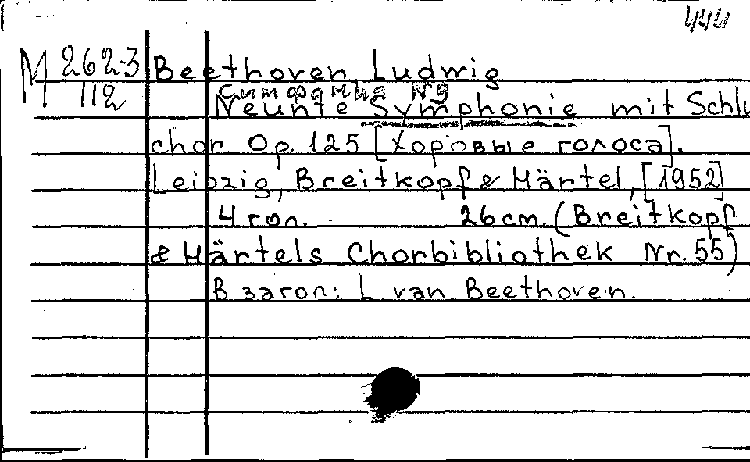 M 262-3
112
Beethoven Ludwig
Симфония №9
Neunte Symphonie mit Schlu
chor Op. 125 [Хоровые голоса].
Leipzig, Breitkopf & Härtel, [1952]
4 гол. 26 cm. (Breitkopf
& Härtels Chorbibliothek Nr. 55)
В загол: L. van Beethoven.